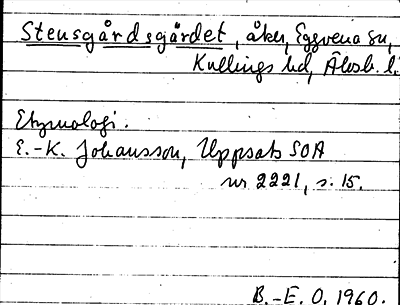 Stensgårdsgärdet, åker, Eggvena sn,
Kullings hd, Älvsb. l.
Etymologi.
E.-K. Johansson, Uppsats SOA
nr 2221, s. 15.
B.-E. O. 1960.